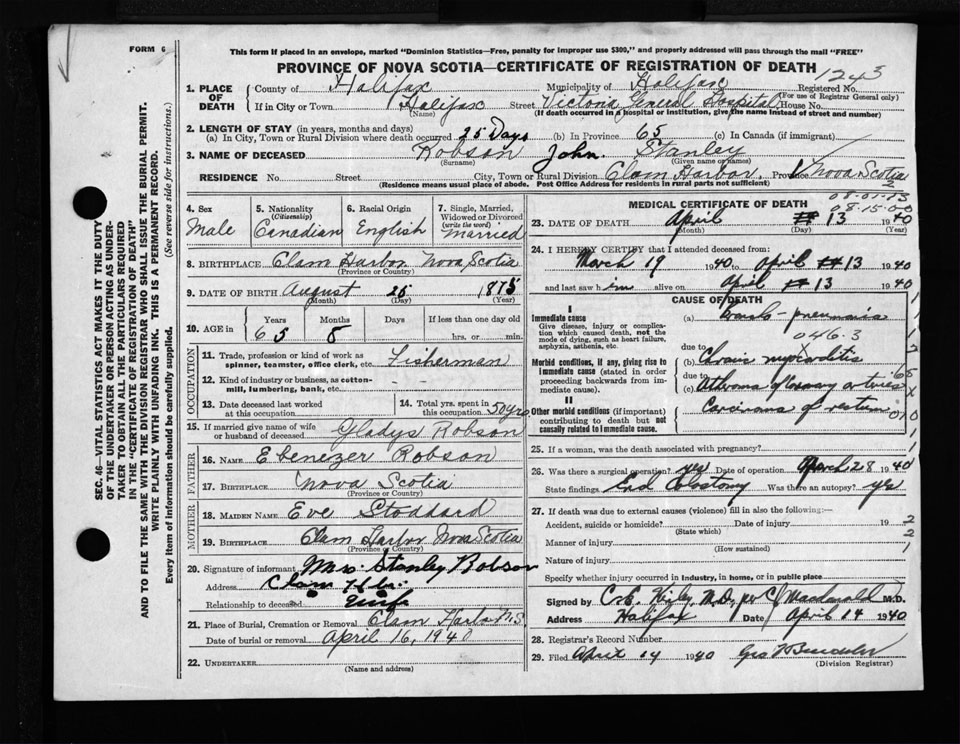 FORM 6
This form if placed in an envelope, marked "Dominion Statistics—Free, penalty for improper use $300," and properly addressed will pass through the mail "FREE"
PROVINCE OF NOVA SCOTIA—CERTIFICATE OF REGISTRATION OF DEATH
1243
1. PLACE OF DEATH { County of Halifax Municipality of Halifax Registered No.
(For use of Registrar General only)
If in City or Town Halifax Street Victoria General Hospital House No.
(Name) (If death occurred in a hospital or institution, give the name instead of street and number)
2. LENGTH OF STAY (in years, months and days)
(a) In City, Town or Rural Division where death occurred 25 Days (b) In Province 65 (c) In Canada (if immigrant)
3. NAME OF DECEASED Robson John. Stanley
(Surname) (Given name or names)
RESIDENCE No. Street City, Town or Rural Division Clam Harbor. Province Nova Scotia
(Residence means usual place of abode. Post Office Address for residents in rural parts not sufficient)
4. Sex Male
5. Nationality (Citizenship) Canadian
6. Racial Origin English
7. Single, Married, Widowed or Divorced (write the word) Married
8. BIRTHPLACE Clam Harbor Nova Scotia
(Province or Country)
9. DATE OF BIRTH August 25 1875
(Month) (Day) (Year)
10. AGE in { Years Months Days If less than one day old
65 8 hrs. or min.
OCCUPATION
11. Trade, profession or kind of work as spinner, teamster, office clerk, etc. Fisherman
12. Kind of industry or business, as cotton-mill, lumbering, bank, etc.
13. Date deceased last worked at this occupation
14. Total yrs. spent in this occupation 50 yrs.
15. If married give name of wife or husband of deceased Gladys Robson
FATHER
16. NAME Ebenezer Robson
17. BIRTHPLACE Nova Scotia
(Province or Country)
MOTHER
18. MAIDEN NAME Eve Stoddard
19. BIRTHPLACE Clam Harbor Nova Scotia
(Province or Country)
20. Signature of informant Mrs. Stanley Robson
Address Clam Hbr.
Relationship to deceased Wife
21. Place of Burial, Cremation or Removal Clam Harbor N.S.
Date of burial or removal April 16, 1940
22. UNDERTAKER
(Name and address)
MEDICAL CERTIFICATE OF DEATH
23. DATE OF DEATH April 13 1940
(Month) (Day) (Year)
24. I HEREBY CERTIFY that I attended deceased from:
March 19 1940 to April 13 1940
and last saw him alive on April 13 1940
CAUSE OF DEATH
I
Immediate cause
Give disease, injury or complication which caused death, not the mode of dying, such as heart failure, asphyxia, asthenia, etc.
(a) Broncho-pneumonia
046.3
due to
Morbid conditions, if any, giving rise to immediate cause (stated in order proceeding backwards from immediate cause).
(b) Chronic myocarditis
due to
(c) Atheroma of coronary arteries
II
Other morbid conditions (if important) contributing to death but not causally related to immediate cause.
Carcinoma of rectum
25. If a woman, was the death associated with pregnancy?
26. Was there a surgical operation? yes Date of operation March 28 1940
State findings End Colostomy Was there an autopsy? yes
27. If death was due to external causes (violence) fill in also the following:—
Accident, suicide or homicide? Date of injury 19
(State which)
Manner of injury
(How sustained)
Nature of injury
Specify whether injury occurred in industry, in home, or in public place
Signed by M.D. per C J Macdonald M.D.
Address Halifax Date April 14 1940
28. Registrar's Record Number
29. Filed April 14 1940
(Division Registrar)
SEC. 46—VITAL STATISTICS ACT MAKES IT THE DUTY
OF THE UNDERTAKER OR PERSON ACTING AS UNDER-
TAKER TO OBTAIN ALL THE PARTICULARS REQUIRED
IN THE "CERTIFICATE OF REGISTRATION OF DEATH"
AND TO FILE THE SAME WITH THE DIVISION REGISTRAR WHO SHALL ISSUE THE BURIAL PERMIT.
WRITE PLAINLY WITH UNFADING INK. THIS IS A PERMANENT RECORD.
Every item of information should be carefully supplied. (See reverse side for instructions.)